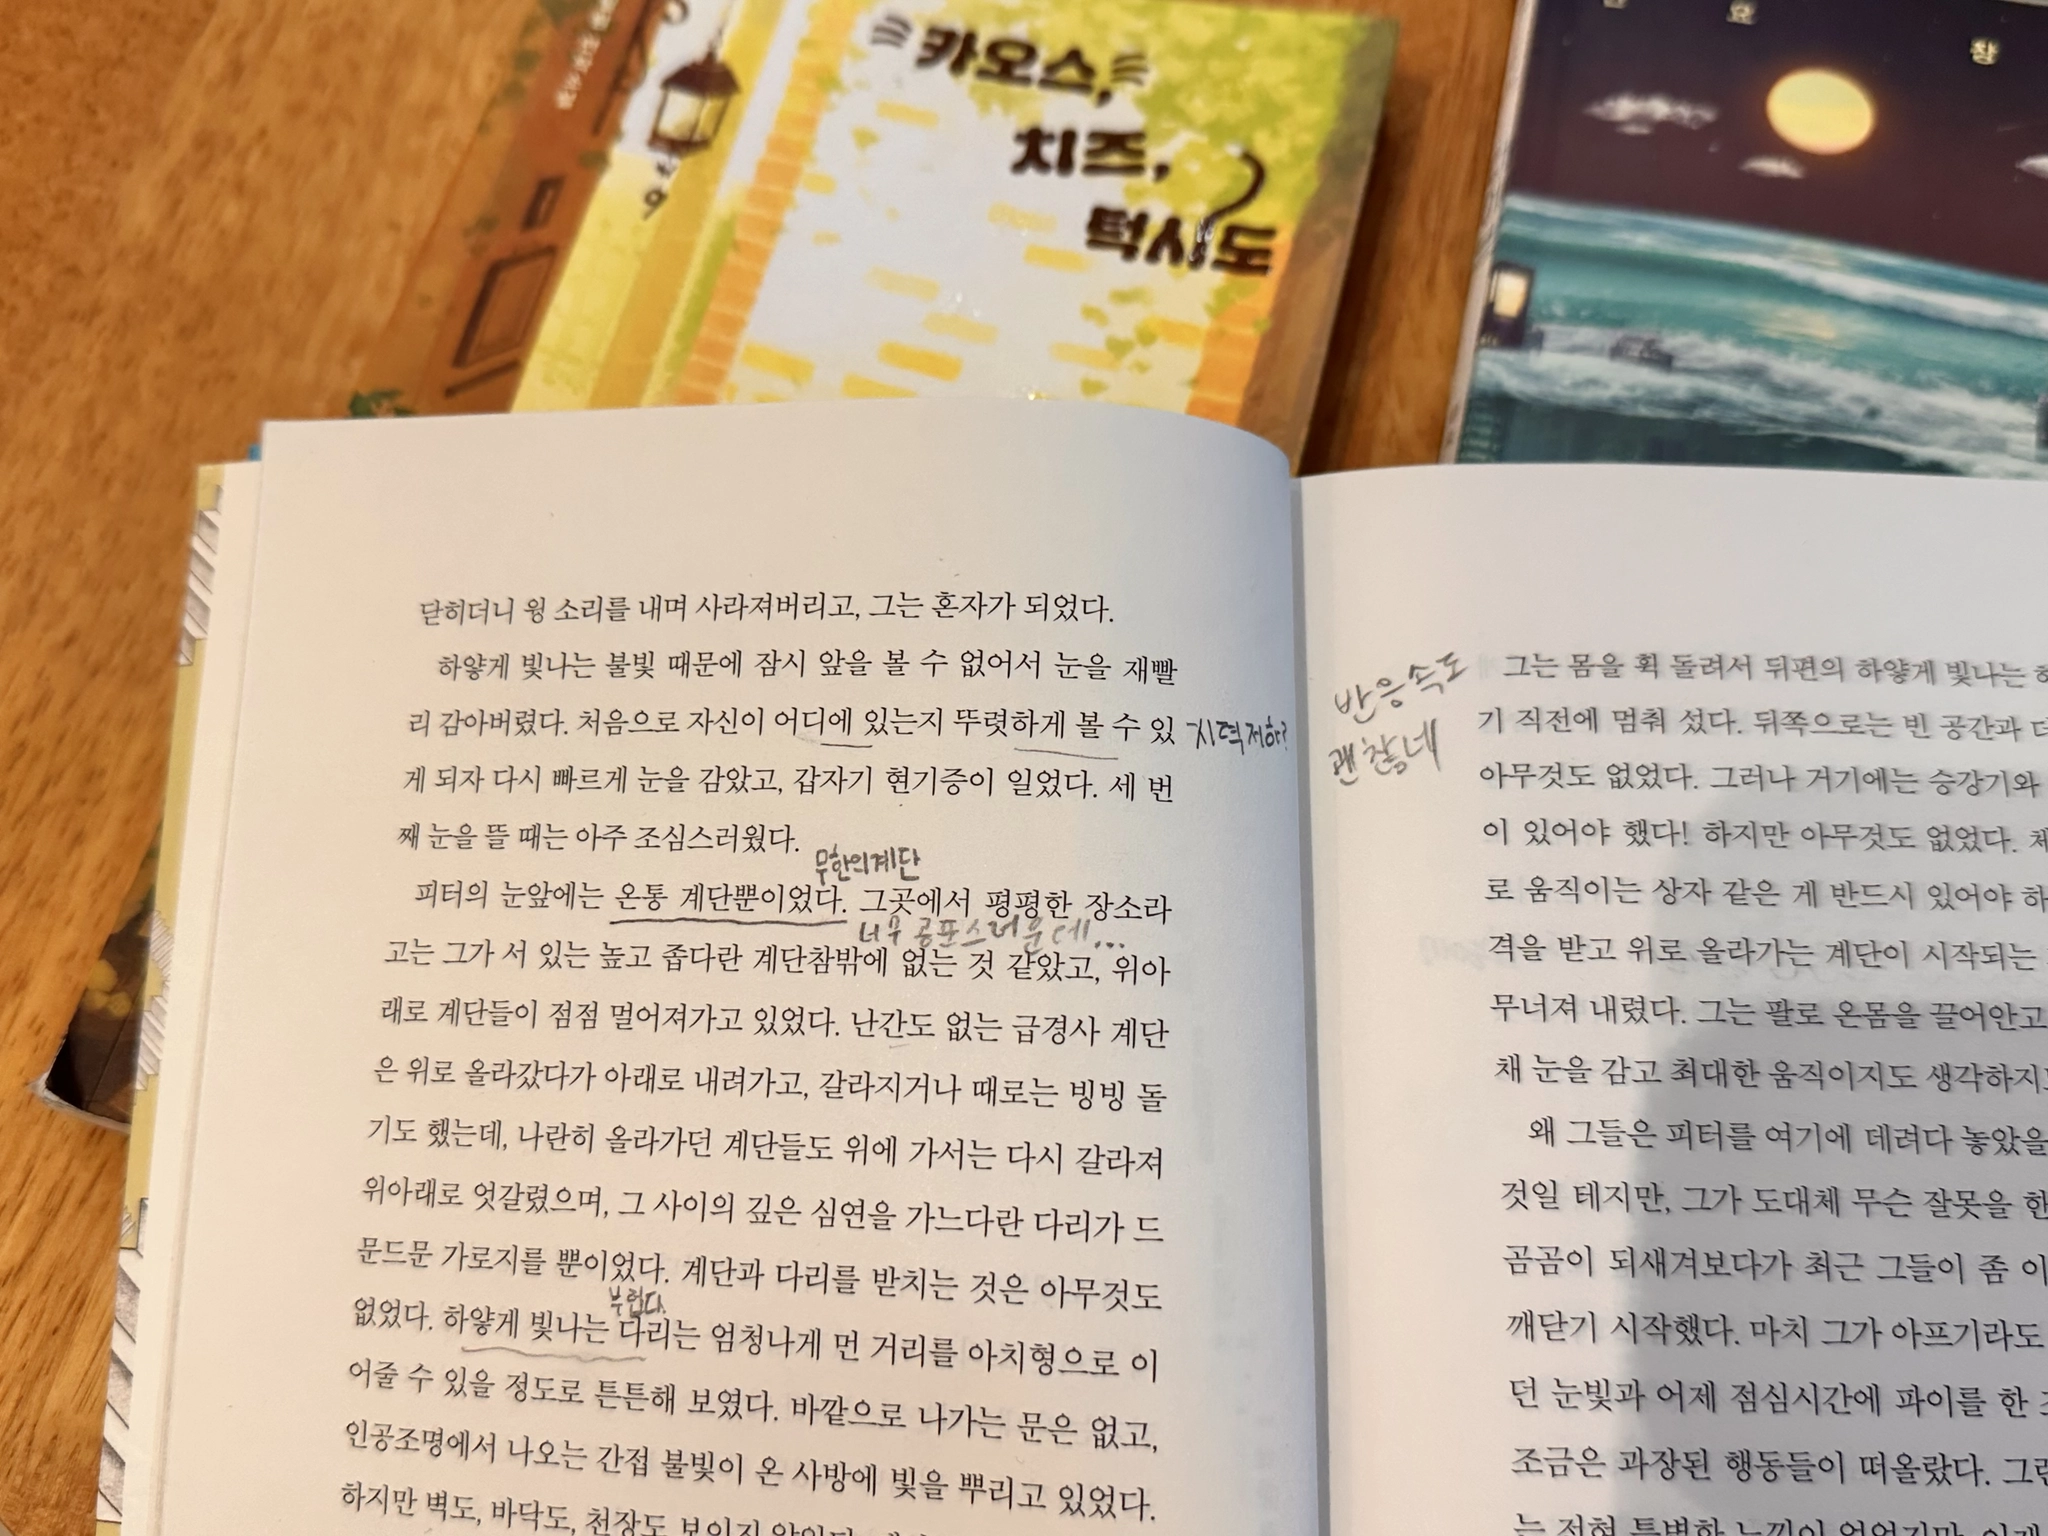 카오스,
치즈,
턱시도
닫히더니 윙 소리를 내며 사라져버리고, 그는 혼자가 되었다.
하얗게 빛나는 불빛 때문에 잠시 앞을 볼 수 없어서 눈을 재빨
리 감아버렸다. 처음으로 자신이 어디에 있는지 뚜렷하게 볼 수 있
지력저하?
게 되자 다시 빠르게 눈을 감았고, 갑자기 현기증이 일었다. 세 번
째 눈을 뜰 때는 아주 조심스러웠다.
무한의계단
피터의 눈앞에는 온통 계단뿐이었다. 그곳에서 평평한 장소라
너무 공포스러운데...
고는 그가 서 있는 높고 좁다란 계단참밖에 없는 것 같았고, 위아
래로 계단들이 점점 멀어져가고 있었다. 난간도 없는 급경사 계단
은 위로 올라갔다가 아래로 내려가고, 갈라지거나 때로는 빙빙 돌
기도 했는데, 나란히 올라가던 계단들도 위에 가서는 다시 갈라져
위아래로 엇갈렸으며, 그 사이의 깊은 심연을 가느다란 다리가 드
문드문 가로지를 뿐이었다. 계단과 다리를 받치는 것은 아무것도
부럽다.
없었다. 하얗게 빛나는 다리는 엄청나게 먼 거리를 아치형으로 이
어줄 수 있을 정도로 튼튼해 보였다. 바깥으로 나가는 문은 없고,
인공조명에서 나오는 간접 불빛이 온 사방에 빛을 뿌리고 있었다.
하지만 벽도, 바닥도, 천장도 보이지 않았다.
반응속도
괜찮네
그는 몸을 휙 돌려서 뒤편의 하얗게 빛나는
기 직전에 멈춰 섰다. 뒤쪽으로는 빈 공간과
아무것도 없었다. 그러나 거기에는 승강기와
이 있어야 했다! 하지만 아무것도 없었다.
로 움직이는 상자 같은 게 반드시 있어야
격을 받고 위로 올라가는 계단이 시작되는
무너져 내렸다. 그는 팔로 온몸을 끌어안고
채 눈을 감고 최대한 움직이지도 생각하지
왜 그들은 피터를 여기에 데려다 놓았을
것일 테지만, 그가 도대체 무슨 잘못을
곰곰이 되새겨보다가 최근 그들이 좀
깨닫기 시작했다. 마치 그가 아프기라도
던 눈빛과 어제 점심시간에 파이를 한
조금은 과장된 행동들이 떠올랐다.
는 전혀 특별한 느낌이 없었지만